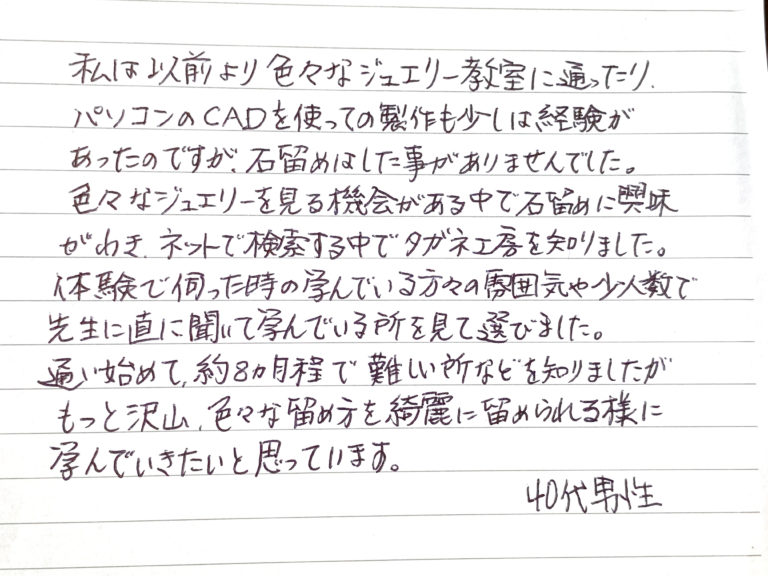 私は以前より色々なジュエリー教室に通ったり、
パソコンのCADを使っての製作も少しは経験が
あったのですが、石留めはした事がありませんでした。
色々なジュエリーを見る機会がある中で石留めに興味
がわき、ネットで検索する中でタガネ工房を知りました。
体験で伺った時の学んでいる方々の雰囲気や少人数で
先生に直に聞いて学んでいる所を見て選びました。
通い始めて、約8ヵ月程で難しい所などを知りましたが
もっと沢山、色々な留め方を綺麗に留められる様に
学んでいきたいと思っています。
40代男性